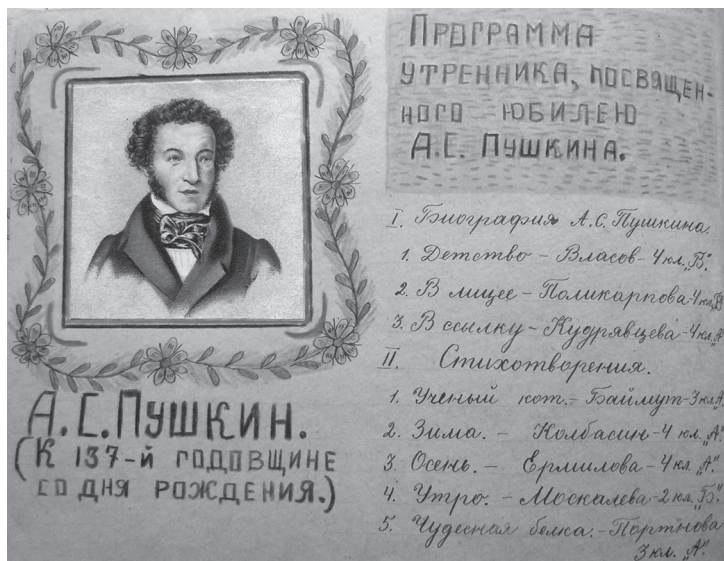 А.С.ПУШКИН.
(К 137-й ГОДОВЩИНЕ
СО ДНЯ РОЖДЕНИЯ.)
ПРОГРАММА
УТРЕННИКА, ПОСВЯЩЕН-
НОГО ЮБИЛЕЮ
А.С. ПУШКИНА.
I. Биография А.С. Пушкина.
1. Детство – Власов – 4 кл. „В".
2. В лицее – Поликарпова – 4 кл. „В"
3. В ссылку – Кудрявцева – 4 кл. „А"
II. Стихотворения.
1. Ученый кот. – Баймут – 3 кл. А
2. Зима. – Колбасин – 4 кл. „А".
3. Осень. – Ермилова – 4 кл. „А".
4. Утро. – Москалева – 2 кл. „Б".
5. Чудесная белка. – Портнова
3 кл. „А".